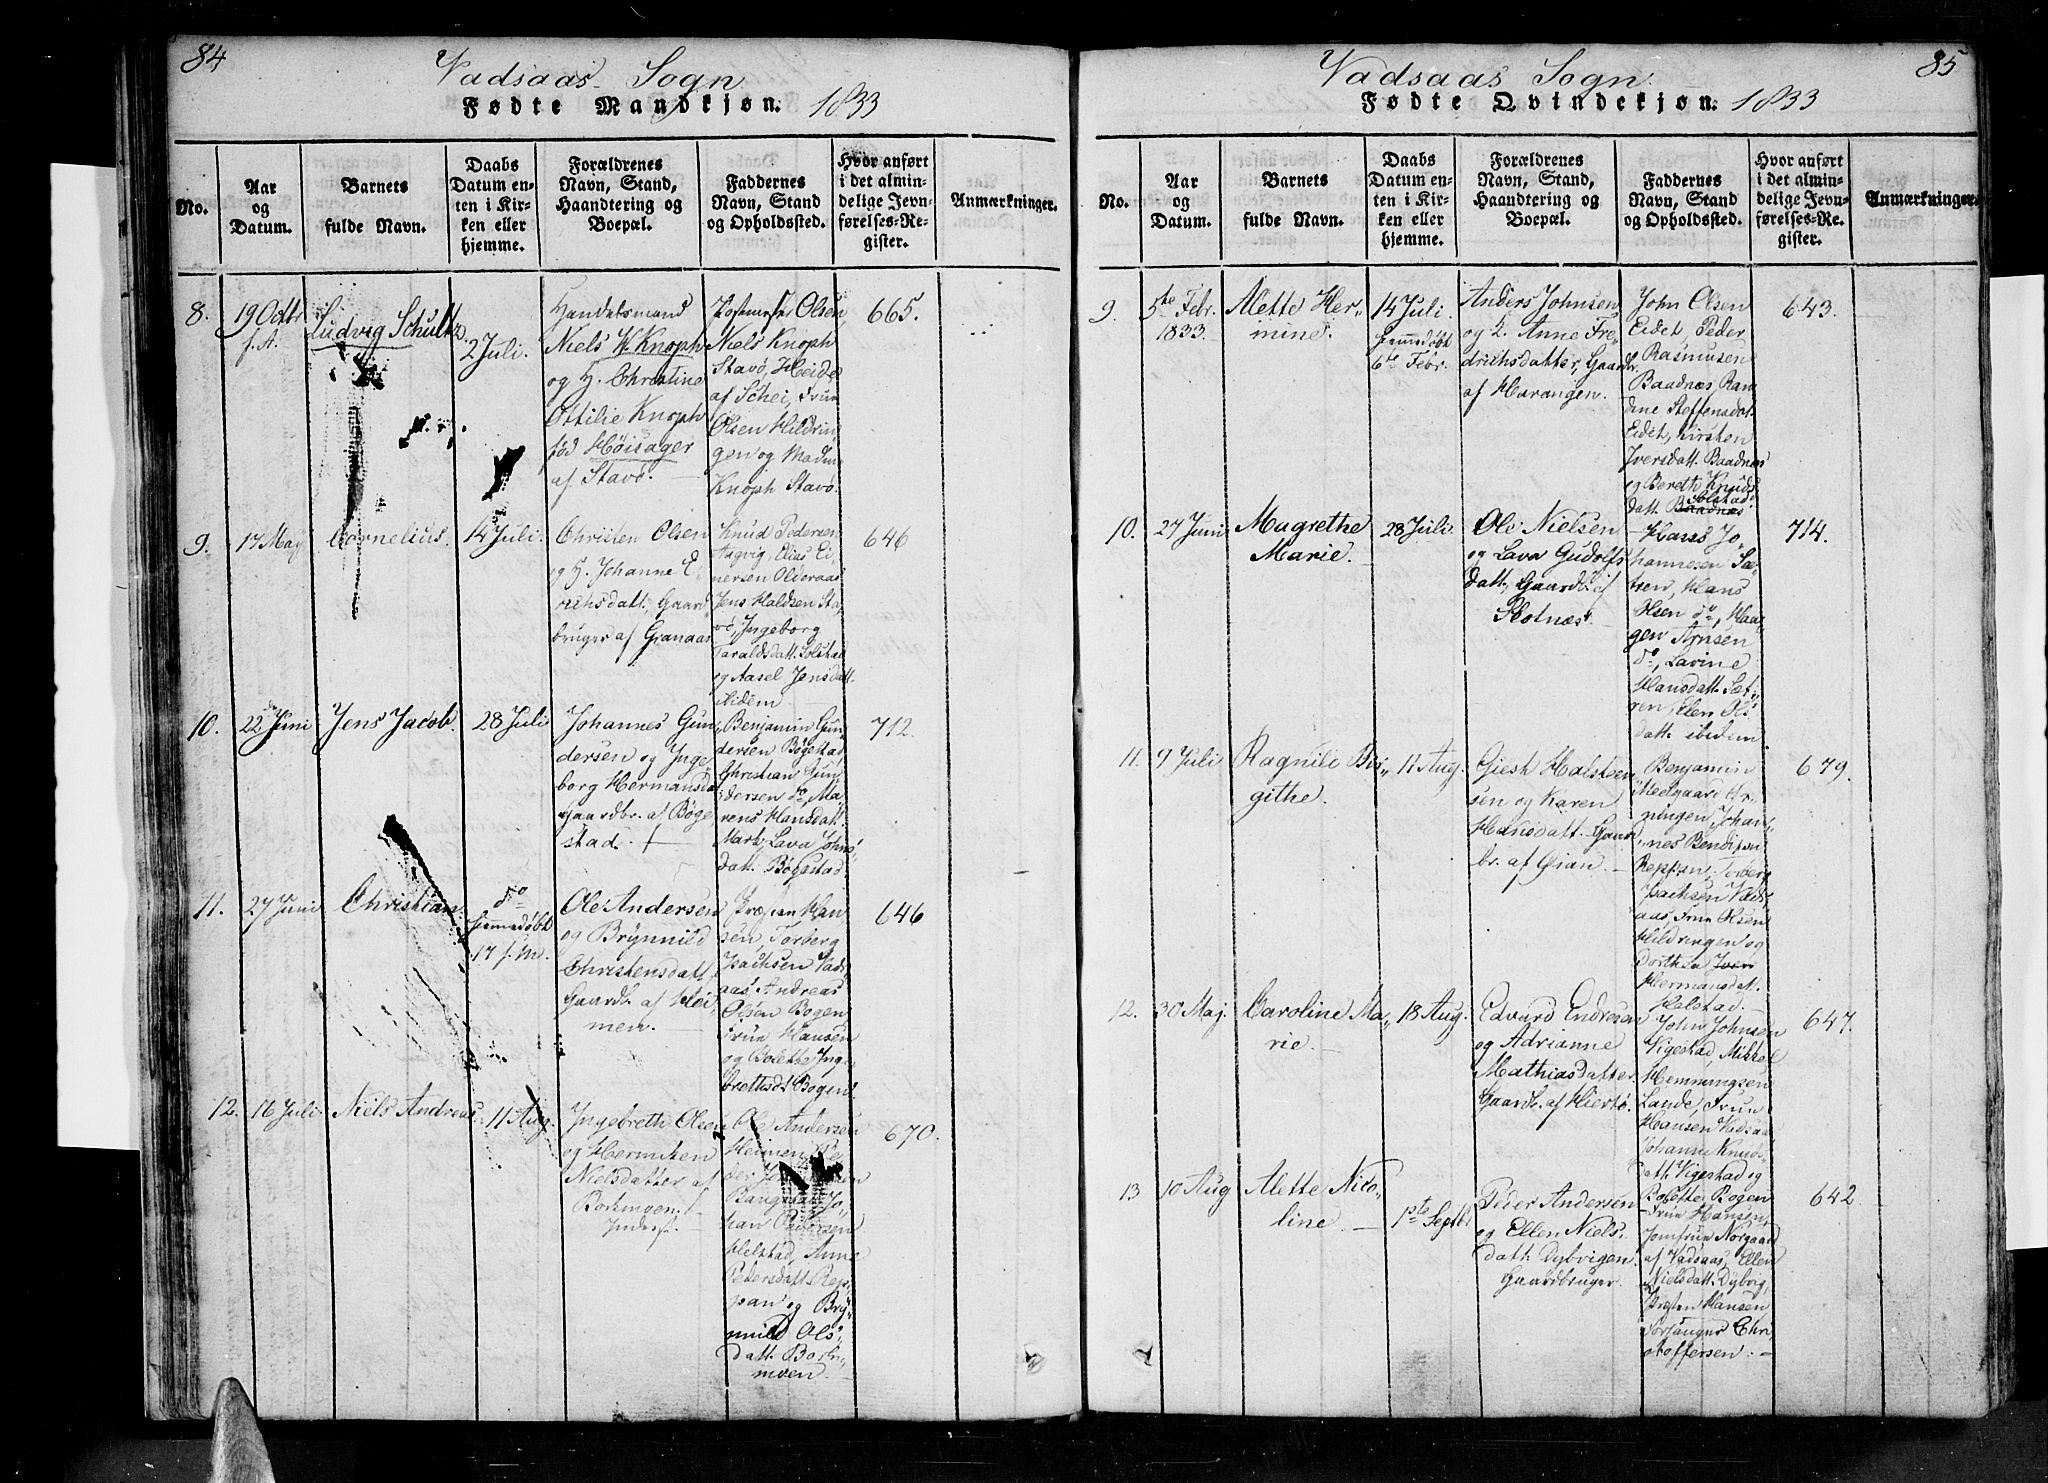 84
Vadsaas Sogn
Fødte Mandkjøn. 1833
No.
Aar
og
Datum.
Barnets
fulde Navn.
Daabs
Datum en-
ten i Kir-
ken eller
hjemme.
Forældrenes
Navn, Stand,
Haandtering og
Boepæl.
Faddernes
Navn, Stand
og Opholdssted.
Hvor anført
i det almin-
delige Jevn-
førelses-Re-
gister.
Anmærkninger.
8.
19 Octbr
f. A.
Ludvig Schultz.
2 Juli.
Handelsmand
Niels W. Knoph
og H. Christine
Ottilie Knoph
fød Høisager
af Stavø.
Olsen,
Niels Knoph
Stavø, Heide
af Schei, Frue
Olsen Hildrin
gen og Madm
Knoph Stavø.
665.
9.
17 May
Cornelius.
14 Juli.
Christen Olsen
og H. Johanne E,
richsdatt, Gaard
bruger af Granaas
Knud Pedersen
Aagvig Elias Ei,
nersen Olderaas
Jens Haldsen Sta,
vø, Ingeborg
Taraldsdatt. Solstad
og Aasel Jensdatt.
ibidem
646
10.
22 Juni
Jens Jacob.
28 Juli
Johannes Gun
dersen og Inge
borg Hermansd.
Gaardbr. af Bøge,
stad.
Benjamin Gun
dersen Bøgestad,
Christian Gun
dersen do, Ma
rens Hansdatt.
Mark, Lava Johns
datt. Bøgestad.
712.
11.
27 Juni
Christian
do
hjemmedøbt
17 f. M.
Ole Andersen
og Brynnild
Christensdatt.
Gaardb. af Hei,
men.
Præsten Han
sen, Torberg
Isachsen Vads
aas, Andreas
Olsen Bogen
Frue Hansen
og Bolette Inge
brethsdt Bogen.
646
12.
16 Juli
Niels Andreas.
11 Aug.
Ingebreth Olsen
og Hermiken
Nielsdatter af
Inderst.
Ole Andersen
Heimen, Pe
der
han Pedersen
Helstad, Anne
Pedersdatt. Rep
pan og Bry
nnild Ols
datt.
moen.
670.
85
Vadsaas Sogn.
Fødte Qvindekjøn. 1833
No.
Aar
og
Datum.
Barnets
fulde Navn.
Daabs
Datum en-
ten i Kir-
ken eller
hjemme.
Forældrenes
Navn, Stand,
Haandtering og
Boepæl.
Faddernes
Navn, Stand
og Opholdssted.
Hvor anført
i det almin-
delige Jevn-
førelses-Re-
gister.
Anmærkninger.
9.
5te Febr.
1833.
Alette Her
mine.
14 Juli.
hjemmedøbt
6te Febr.
Anders Johnsen
og H. Anne Fre
drichsdatter, Gaardb.
af Harangen.
John Olsen
Eidet, Peder
Rasmusen
Baadnæs Ran
dine Steffensdat.
Eidet, Kirsten
Iversdatt. Baadnæs
og Bereth Knuds
datt. Solstad
643.
10.
27 Juni
Magrethe
Marie.
28 Juli.
Ole Nielsen
og Lava Gudolfs
datt, Gaardb. af
Slotnæs.
Hans Jo
hannesen Sæ
tren, Hans
Olsen do, Haa
gen Arnsen
do, Lavine
Hansdatt. Sæt
ren, Ellen Ols
datt. ibidem.
714.
11.
9 Juli
Ragnile Bri
githe.
11 Aug.
Giert Halsten
sen og Karen
Hansdatt. Gaard
br. af Øian.
Benjamin
Johan
nes Bendixen
Reppen, Torberg
Isachsen Vads
aas Frue Olsen
Hildringen og
Dorthea
Hermansdatt.
Helstad.
679.
12.
30 Maj.
Caroline Ma
rie.
18 Aug.
Edvard Endresen
og Adrianne
Mathiasdatter
Gaardb. af Hiertø.
John Johnsen
Vigestad, Mikkel
Hemmingsen
Lande, Frue
Hansen Vadsaas
Johanne Knuds
datt. Vigestad og
Bolette Bogen
647.
13
10 Aug
Alette Nico
line.
1ste Septbr
Peder Andersen
og Ellen Niels
datt. Dybvigen
Gaardbruger.
Frue Hansen,
Jomfrue Norgaard
af Vadsaas, Ellen
Nielsdatt. Dybvig,
Præsten Hansen
Forsanger Chri
stoffersen.
642